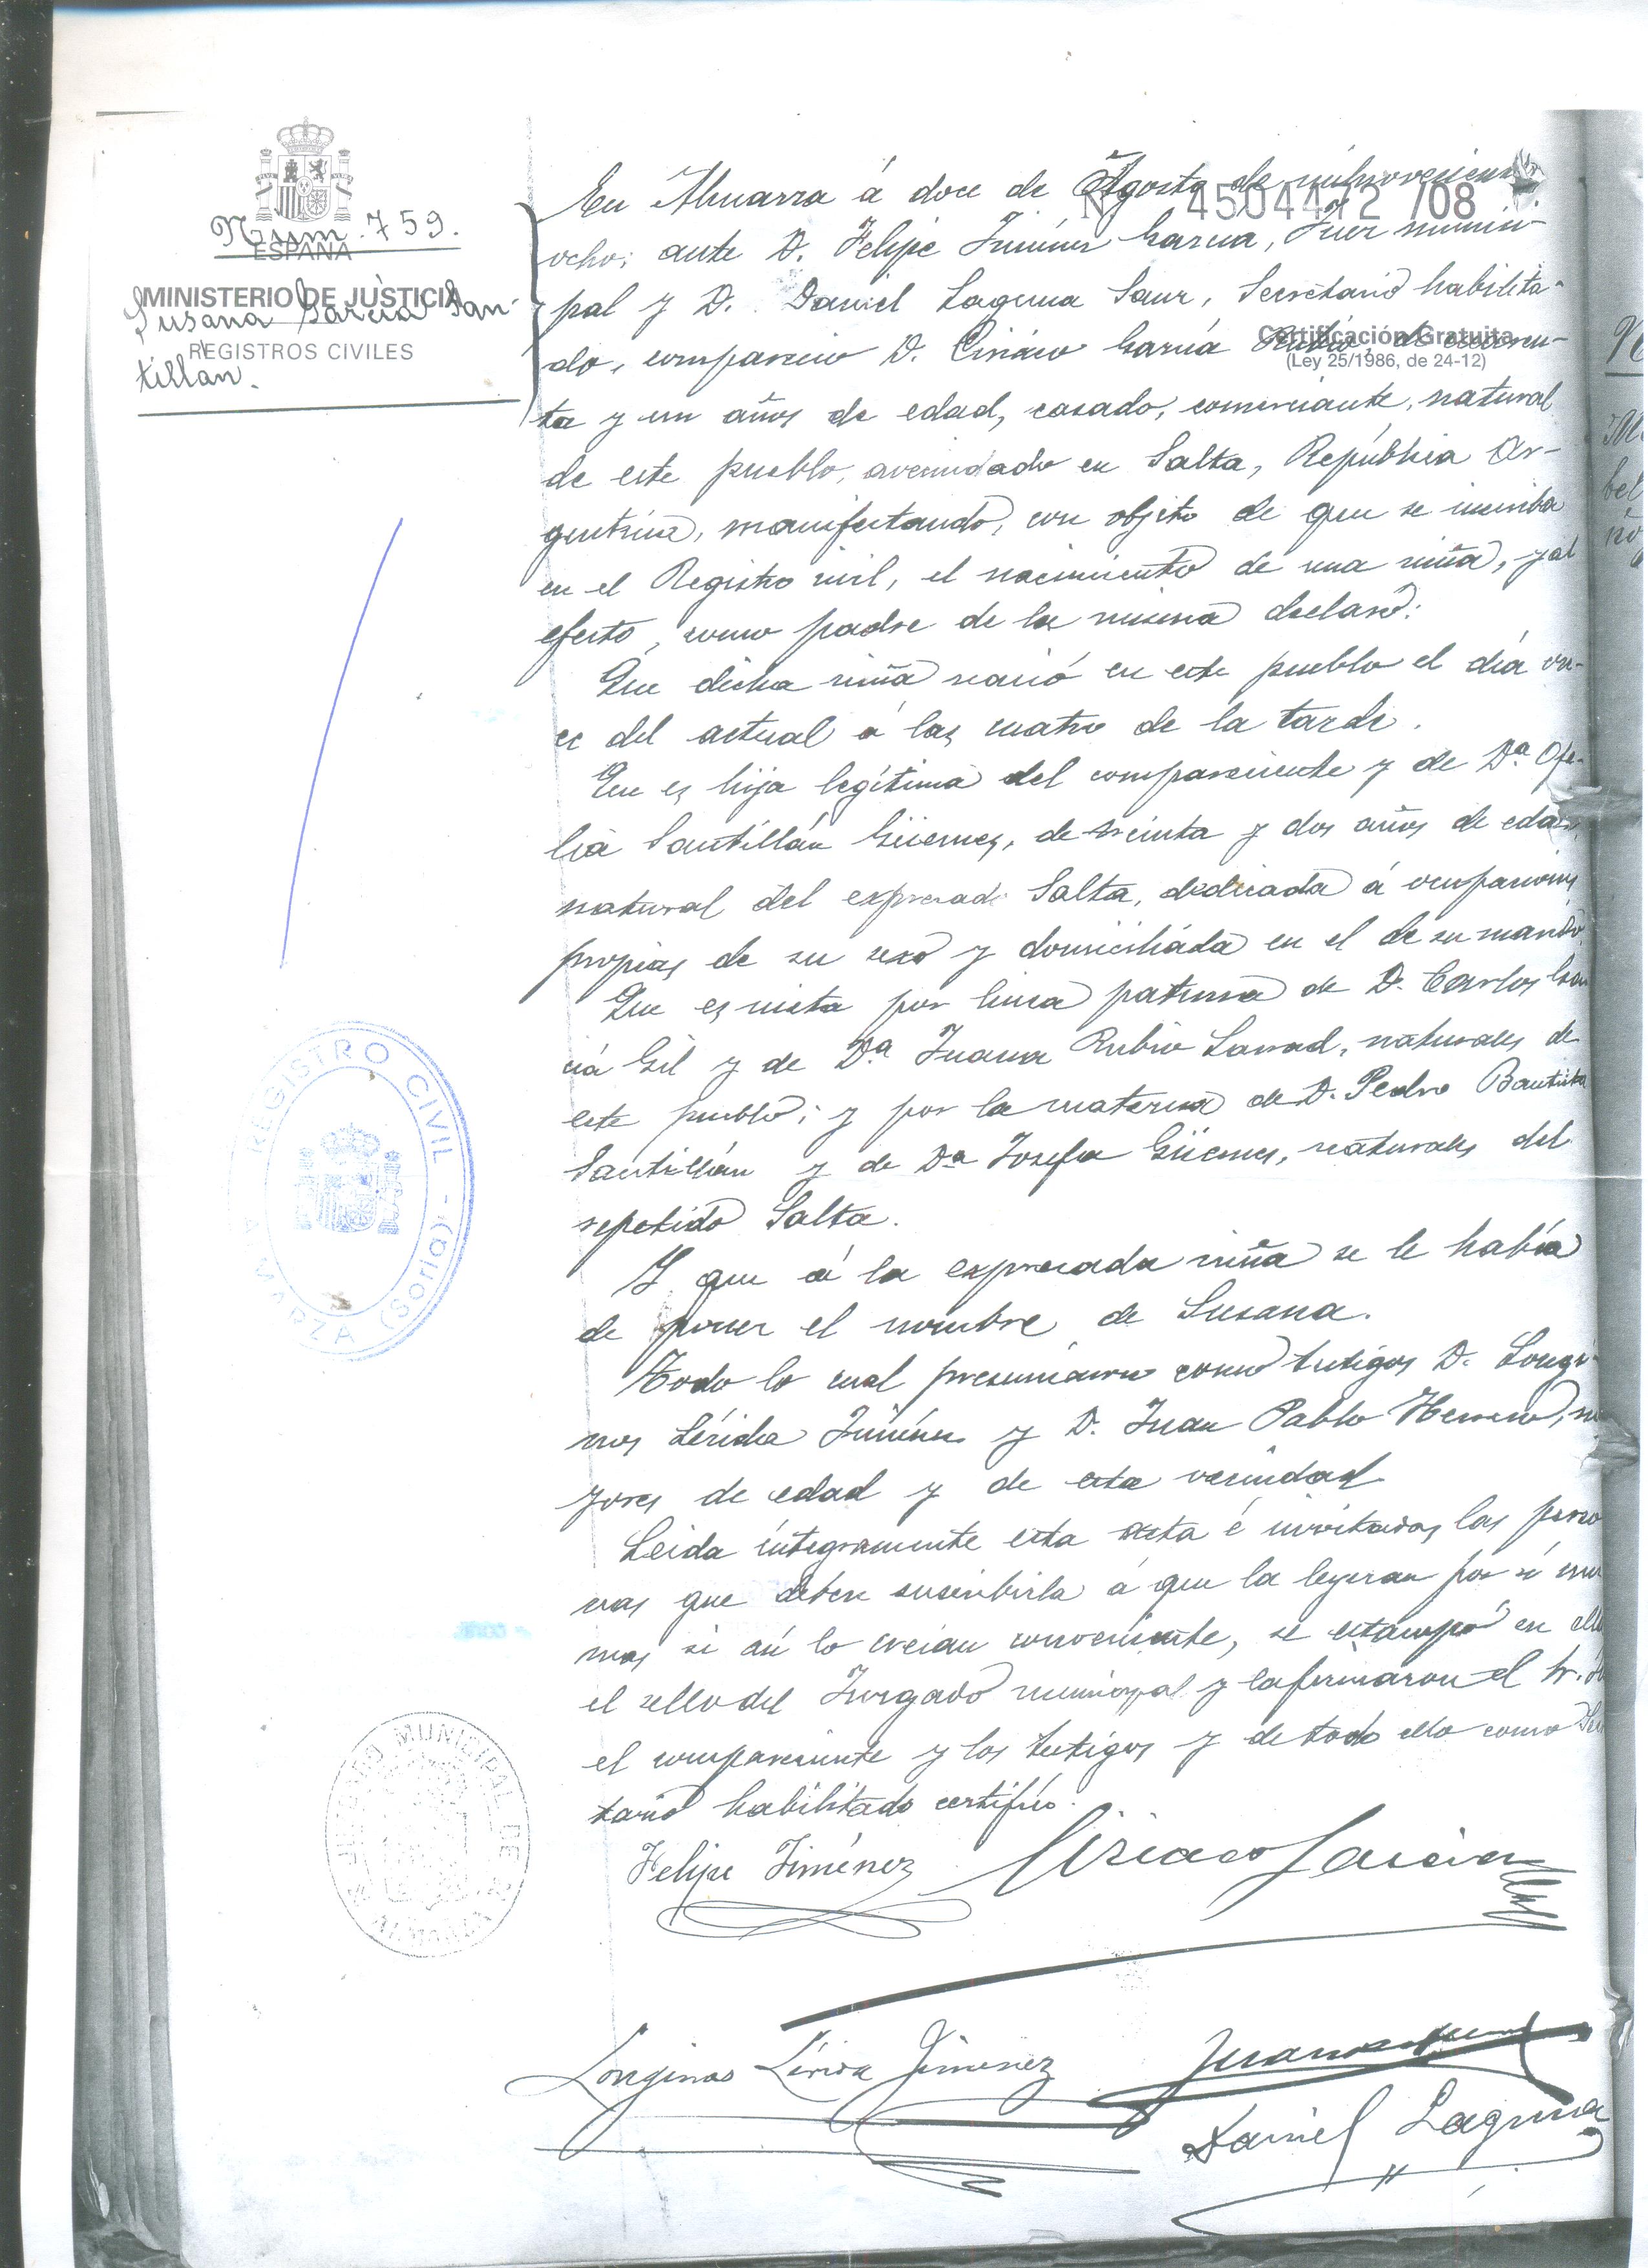 Núm. 759.
ESPAÑA
MINISTERIO DE JUSTICIA
Susana García San-
REGISTROS CIVILES
tillán.
Nº 4504412 /08
Certificación Gratuita
(Ley 25/1986, de 24-12)
En Almarza á doce de Agosto de mil novecientos
ocho; ante D. Felipe Jiménez García, Juez munici-
pal y D. Daniel Laguna Sanz, Secretario habilita-
do, compareció D. Ciriaco García Rubio, de cuaren-
ta y un años de edad, casado, comerciante, natural
de este pueblo, avecindado en Salta, República Ar-
gentina, manifestando, con objeto de que se inscriba
en el Registro civil, el nacimiento de una niña, y al
efecto, como padre de la misma declaró:
Que dicha niña nació en este pueblo el día on-
ce del actual á las cuatro de la tarde.
Que es hija legítima del compareciente y de Dª Ofe-
lia Santillán Güemes, de treinta y dos años de edad,
natural del expresado Salta, dedicada á ocupaciones
propias de su sexo y domiciliada en el de su marido
Que es nieta por linea paterna de D. Carlos Gar
cía Gil y de Dª Juana Rubio, naturales de
este pueblo; y por la materna de D. Pedro Bautista
Santillán y de Dª Josefa Güemes, naturales del
repetido Salta.
Y que á la expresada niña se le había
de poner el nombre de Susana.
Todo lo cual presenciaron como testigos D. Longi-
nos Lérida Jiménez y D. Juan Pablo Herrero, ma
yores de edad y de esta vecindad
Leida íntegramente esta acta é invitadas las perso
nas que deben suscribirla á que la leyeran por sí mis
mas si así lo creían conveniente, se estampó en ella
el sello del Juzgado municipal y la firmaron el Sr. Ju
el compareciente y los testigos y de todo ello como Secre
tario habilitado certifico.
Felipe Jiménez Ciriaco García
Longinos Lérida Jiménez Juan
Daniel Laguna
REGISTRO CIVIL - ALMARZA (Soria) -
JUZGADO MUNICIPAL DE ALMARZA